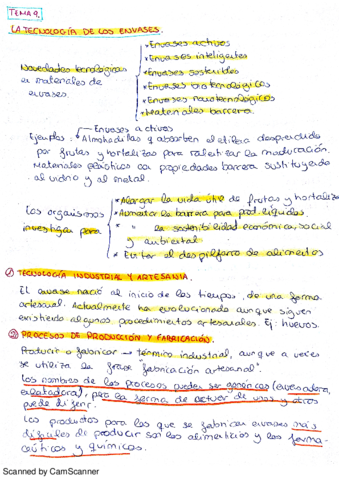 TEMA 9.
LA TECNOLOGÍA DE LOS ENVASES.
• Envases activos
• Envases inteligentes
Novedades tecnológicas • Envases sostenibles
en materiales de • Envases biotecnológicos
envases. • Envases nanotecnológicos
• Materiales barrera.
Envases activos
Ejemplos: • Almohadillas q absorben el etileno desprendido
por frutas y hortalizas para ralentizar la maduración.
Materiales plásticos con propiedades barrera sustituyendo
al vidrio y al metal.
* Alargar la vida útil de frutas y hortalizas
Los organismos * Aumentar la barrera para prod. líquidos.
investigan para * " la sostenibilidad económica, social
y ambiental
* Evitar el despilfarro de alimentos
① TECNOLOGÍA INDUSTRIAL Y ARTESANÍA.
El envase nació al inicio de los tiempos, de una forma
artesanal. Actualmente ha evolucionado aunque siguen
existiendo algunos procedimientos artesanales. Ej: huevos.
② PROCESOS DE PRODUCCIÓN Y FABRICACIÓN.
Producir o fabricar → término industrial, aunque a veces
se utiliza la frase "fabricación artesanal".
Los nombres de los procesos pueden ser genéricos (envasadora,
), pero la forma de actuar de unos y otros
puede diferir.
Los productos para los que se fabrican envases más
difíciles de producir son los alimenticios y los farma-
céuticos y químicos.
Scanned by CamScanner